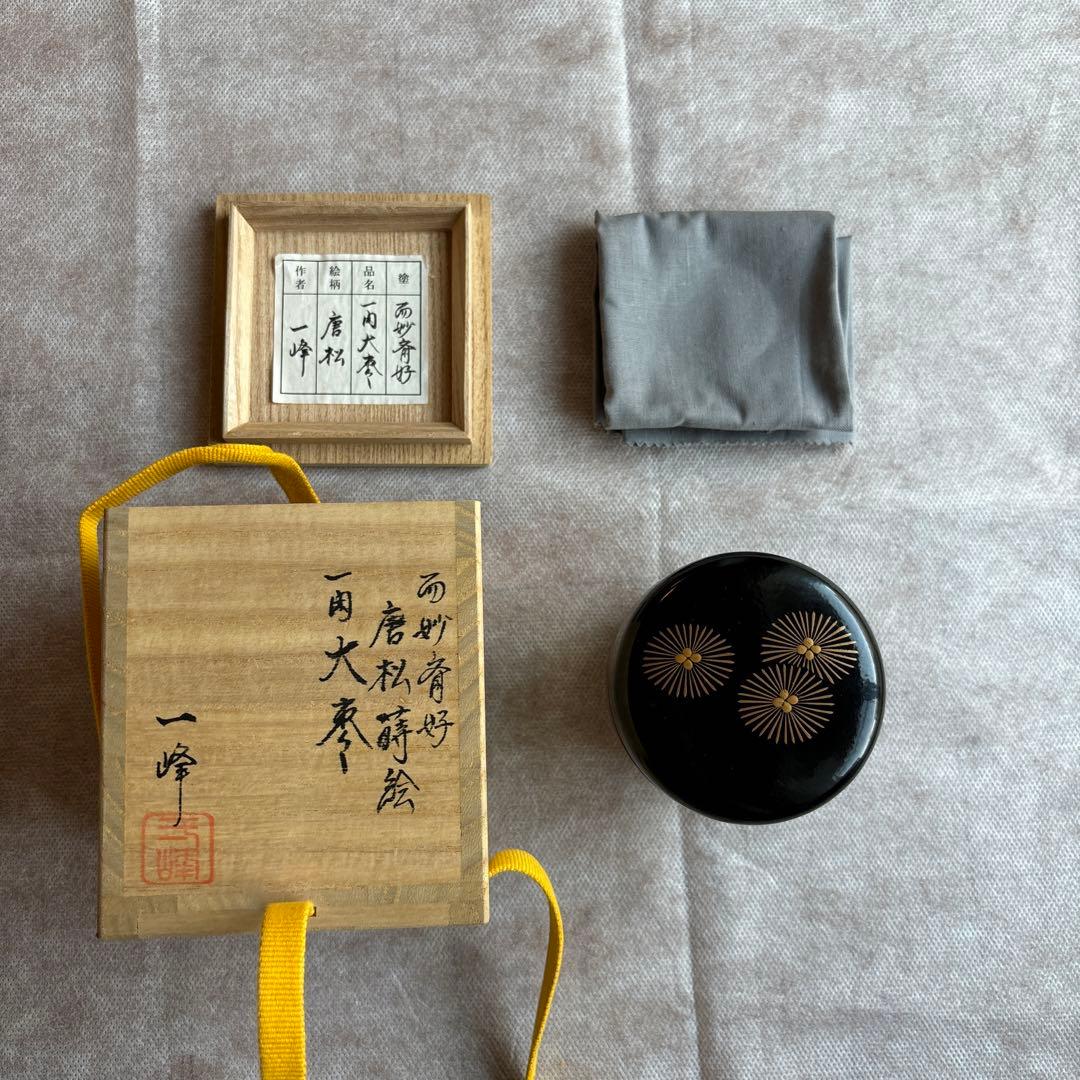 塗 而妙斎好
品名 一閑大棗
絵柄 唐松
作者 一峰
而妙斎好
唐松蒔絵
一閑大棗
一峰